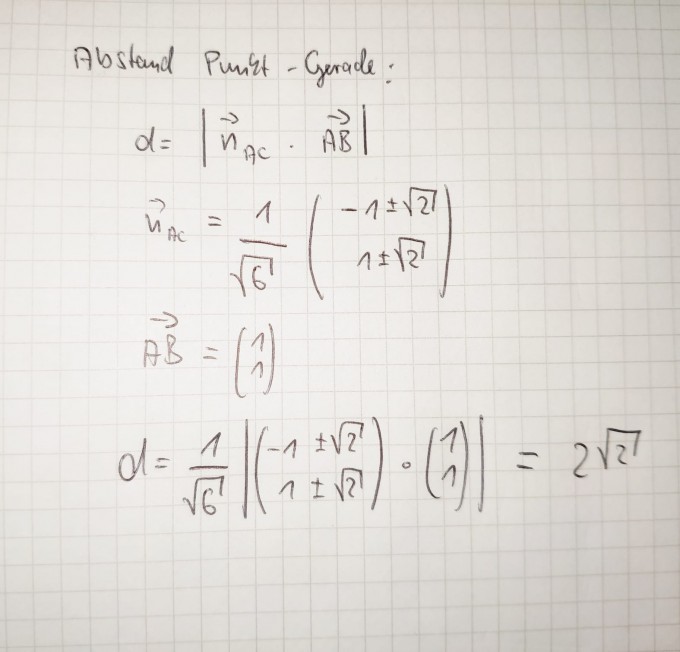 Abstand Punkt-Gerade:
d = | n⃗_AC · AB⃗ |
n⃗_AC = 1/√6 ( -1 ± √2 ; 1 ± √2 )
AB⃗ = ( 1 ; 1 )
d = 1/√6 | ( -1 ± √2 ; 1 ± √2 ) · ( 1 ; 1 ) | = 2√2